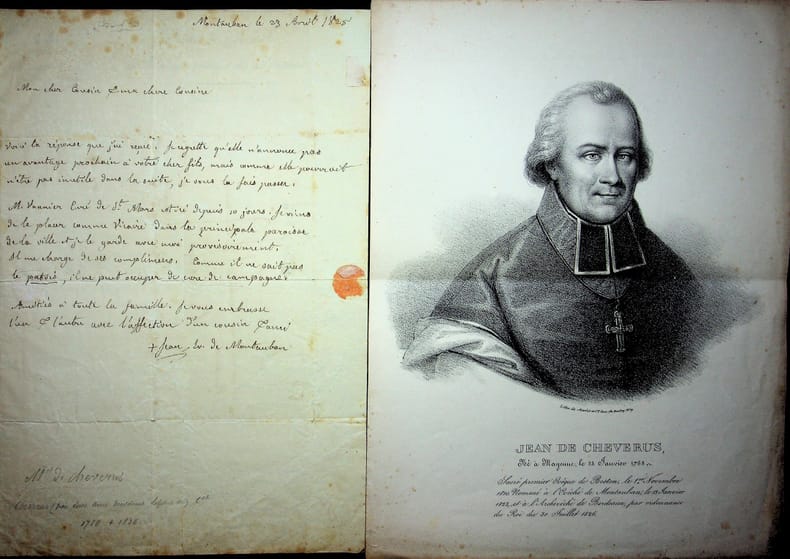 Montauban le 23 Avril 1825
Mon cher Cousin & ma chere Cousine
Voici la réponse que j'ai reçue. Je regrette qu'elle n'annonce pas
un avantage prochain à votre cher fils, mais comme elle pourrait
n'être pas inutile dans la suite, je vous la fais passer.
M. Vannier Curé de St. Mars est ici depuis 10 jours. Je viens
de le placer comme Vicaire dans la principale paroisse
de la ville et je le garde avec moi provisoirement.
Il me charge de ses complimens. Comme il ne sait pas
le patois, il ne peut occuper de cure de campagne.
Amitiés à toute la famille. Je vous embrasse
l'un & l'autre avec l'affection d'un cousin & ami
+ Jean Ev. de Montauban
Mgr de Cheverus
1768 + 1836
JEAN DE CHEVERUS,
Né à Mayenne, le 28 Janvier 1768.
Sacré premier Evêque de Boston, le 1er Novembre
1810 Nommé à l'Evêché de Montauban, le 13 Janvier
1823, et à l'Archevêché de Bordeaux, par ordonnance
du Roi du 30 Juillet 1826.